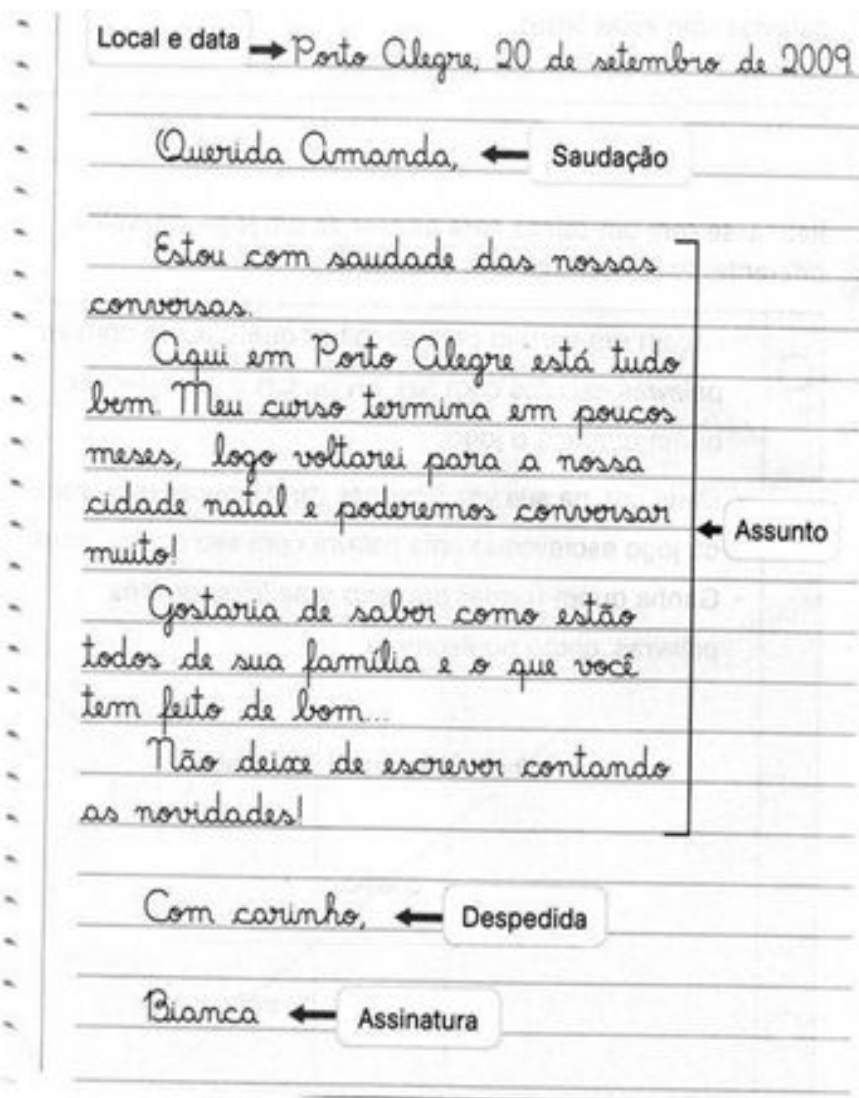 Local e data Porto Alegre, 20 de setembro de 2009
Querida Amanda, Saudação
Estou com saudade das nossas
conversas.
Aqui em Porto Alegre está tudo
bem. Meu curso termina em poucos
meses, logo voltarei para a nossa
cidade natal e poderemos conversar
muito!
Assunto
Gostaria de saber como estão
todos de sua família e o que você
tem feito de bom...
Não deixe de escrever contando
as novidades!
Com carinho, Despedida
Bianca Assinatura